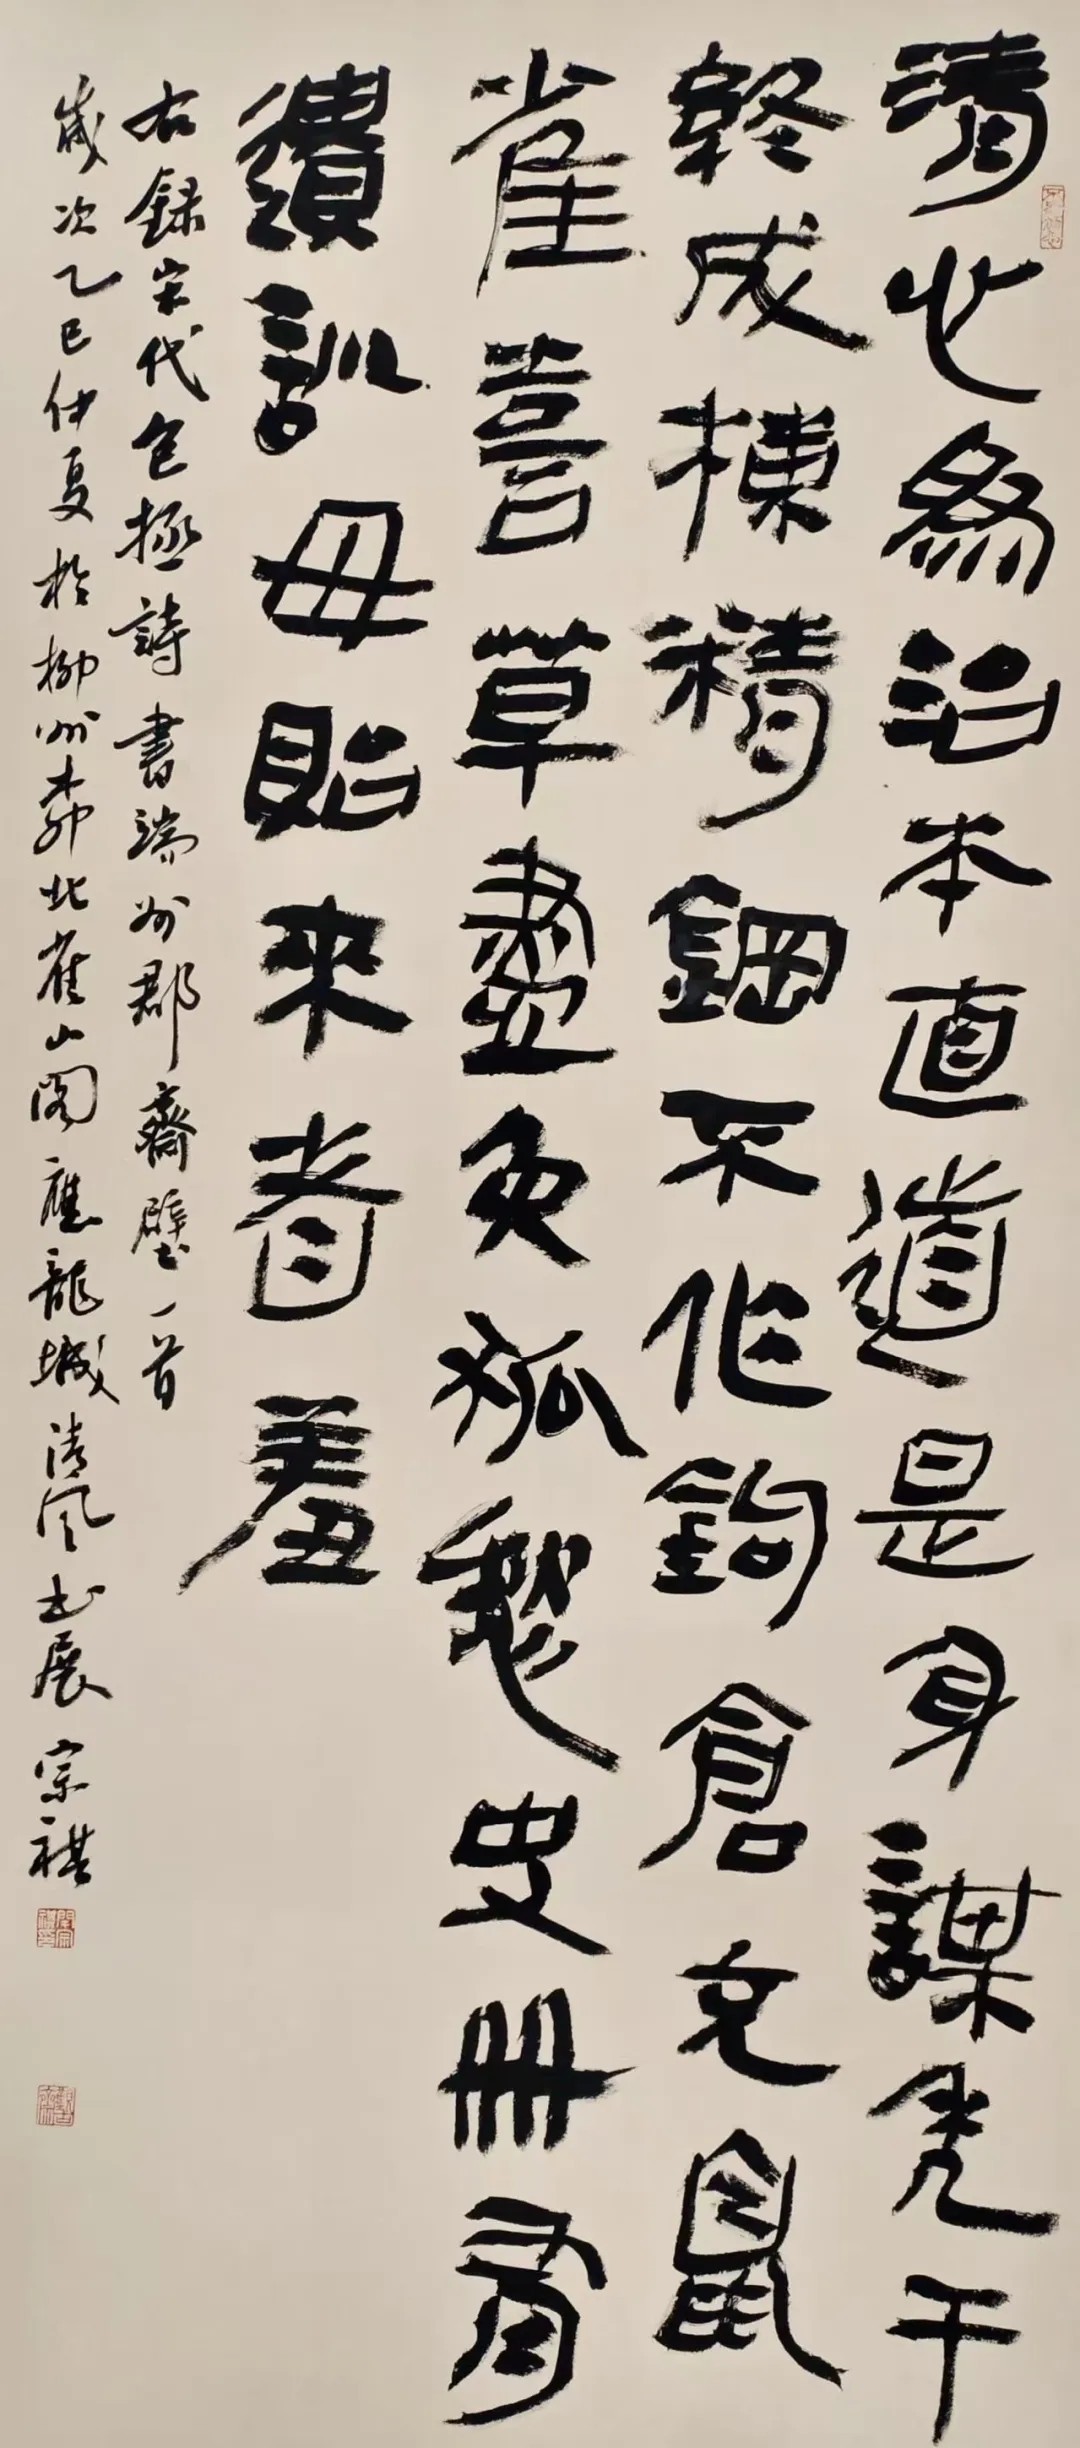 清心為治本直道是身謀秀干
終成棟精鋼不作鉤倉充鼠
雀喜草盡兔狐愁史冊有
遺訓毋貽來者羞
右録宋代包拯詩書端州郡齋壁一首
歲次乙巳仲夏於柳州北雀山閣應龍城清风书展宗祺